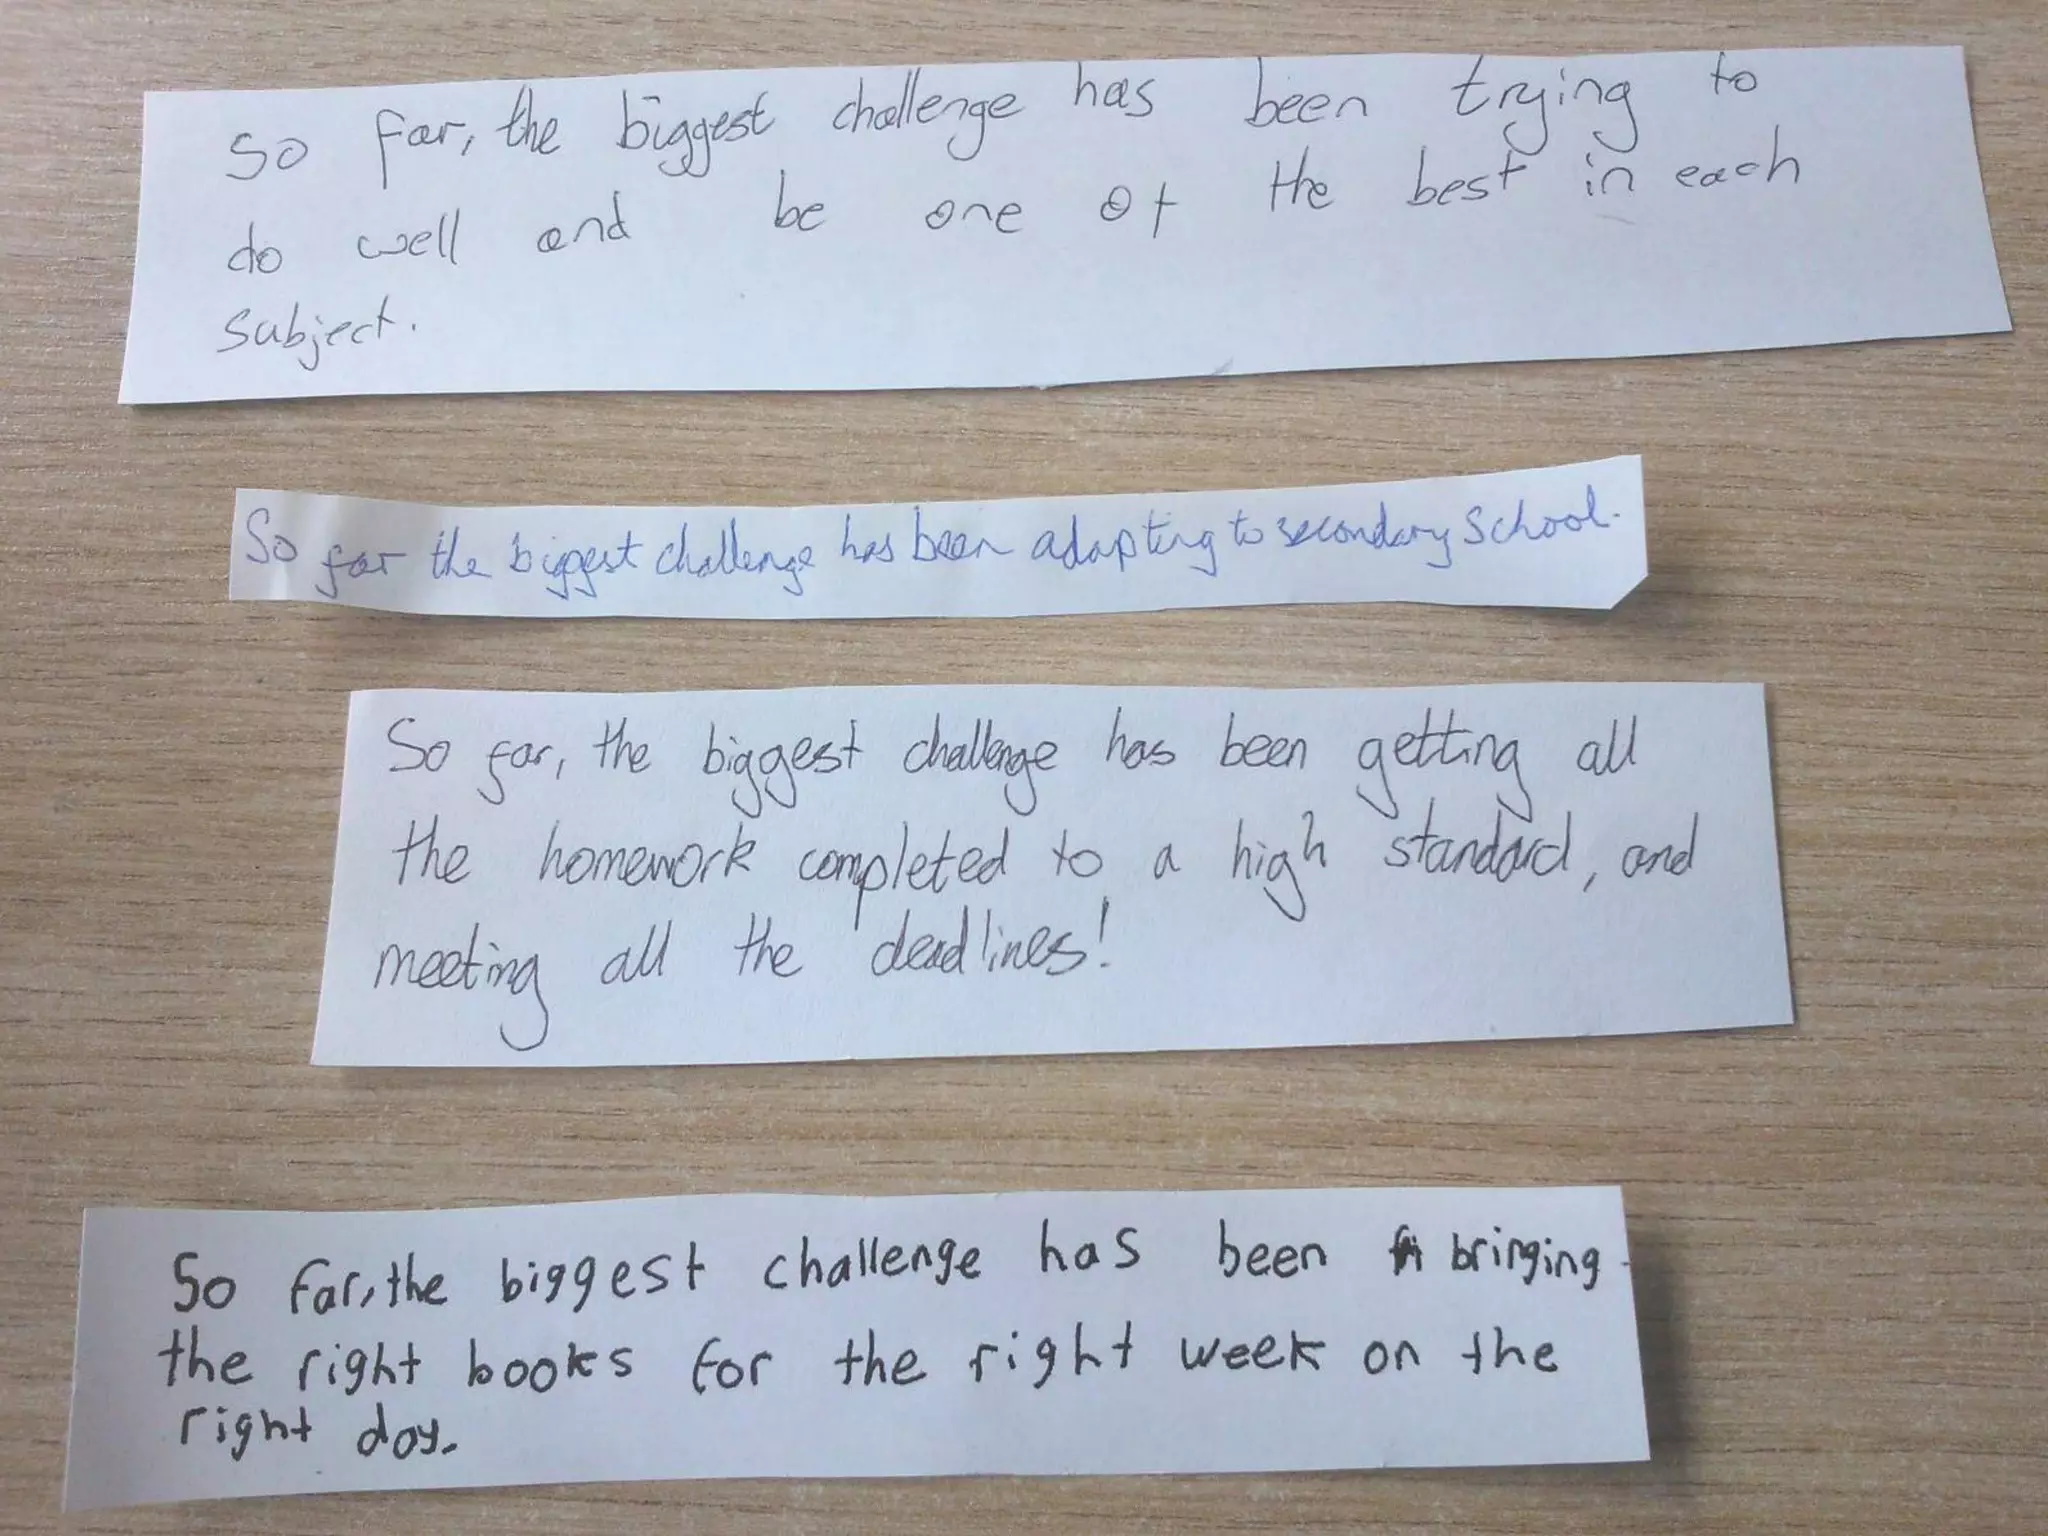 So far, the biggest challenge has been trying to
do well and be one of the best in each
subject.
So far the biggest challenge has been adapting to secondary school.
So far, the biggest challenge has been getting all
the homework completed to a high standard, and
meeting all the deadlines!
So far, the biggest challenge has been bringing
the right books for the right week on the
right day.